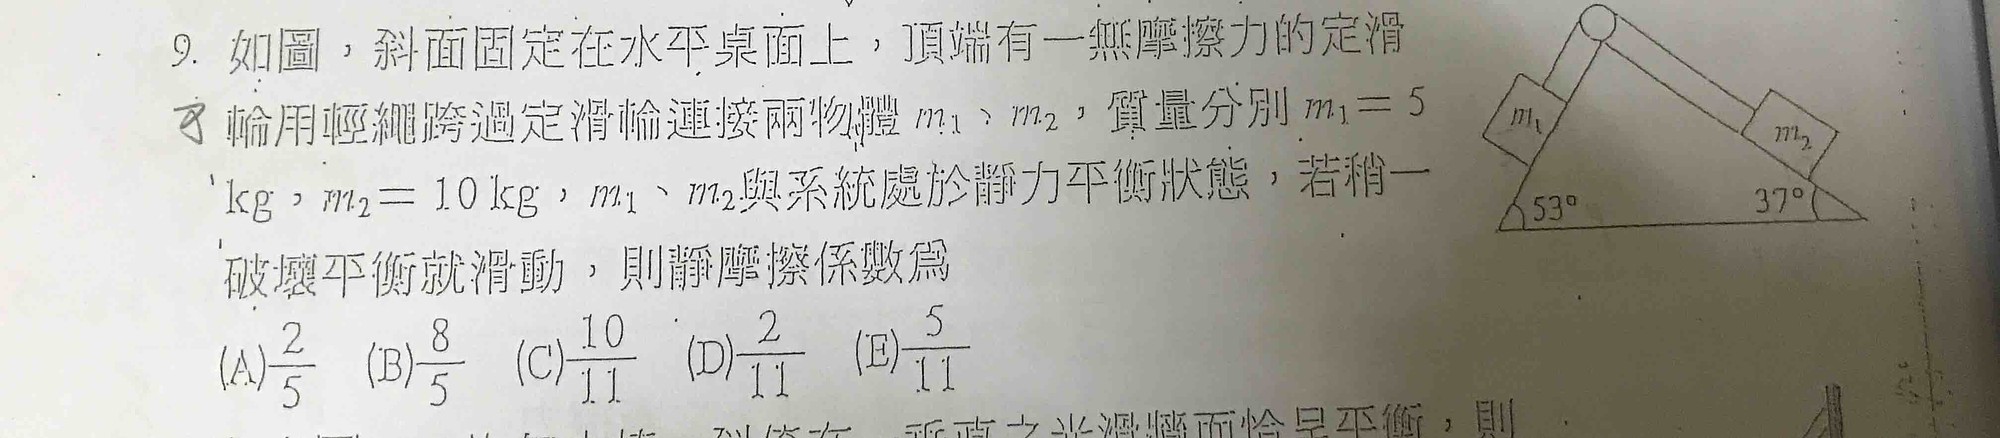 9. 如圖，斜面固定在水平桌面上，頂端有一無摩擦力的定滑
輪用輕繩跨過定滑輪連接兩物體 m₁、m₂，質量分別 m₁＝5
kg，m₂＝10 kg，m₁、m₂與系統處於靜力平衡狀態，若稍一
破壞平衡就滑動，則靜摩擦係數為
(A) 2/5 (B) 8/5 (C) 10/11 (D) 2/11 (E) 5/11
m₁
m₂
53°
37°